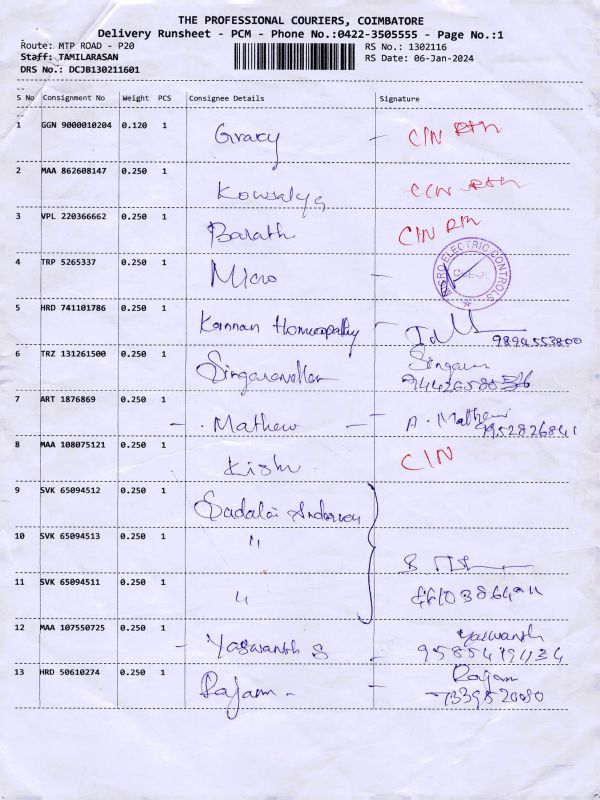 THE PROFESSIONAL COURIERS, COIMBATORE
Delivery Runsheet - PCM - Phone No.:0422-3505555 - Page No.:1
Route: MTP ROAD - P20 RS No.: 1302116
Staff: TAMILARASAN RS Date: 06-Jan-2024
DRS No.: DCJB130211601
S No Consignment No Weight PCS Consignee Details Signature
1 GGN 9000010204 0.120 1 Gracy - CIN RTN
2 MAA 862608147 0.250 1 Kowsalya RTN
3 VPL 220366662 0.250 1 Barath CIN RTN
4 TRP 5265337 0.250 1 Micro - MICRO ELECTRIC CONTROLS
5 HRD 741101786 0.250 1 Kannan Homeopathy - 9894553800
6 TRZ 131261500 0.250 1 Singaravellan Singaram
7 ART 1876869 0.250 1 - . Mathew - A. Mathew
9952826841
8 MAA 108075121 0.250 1 CIN
9 SVK 65094512 0.250 1 Sadalai
10 SVK 65094513 0.250 1 "
11 SVK 65094511 0.250 1 "
12 MAA 107550725 0.250 1 - Yaswanth S - Yaswanth
13 HRD 50610274 0.250 1 Rajam - - Rajam